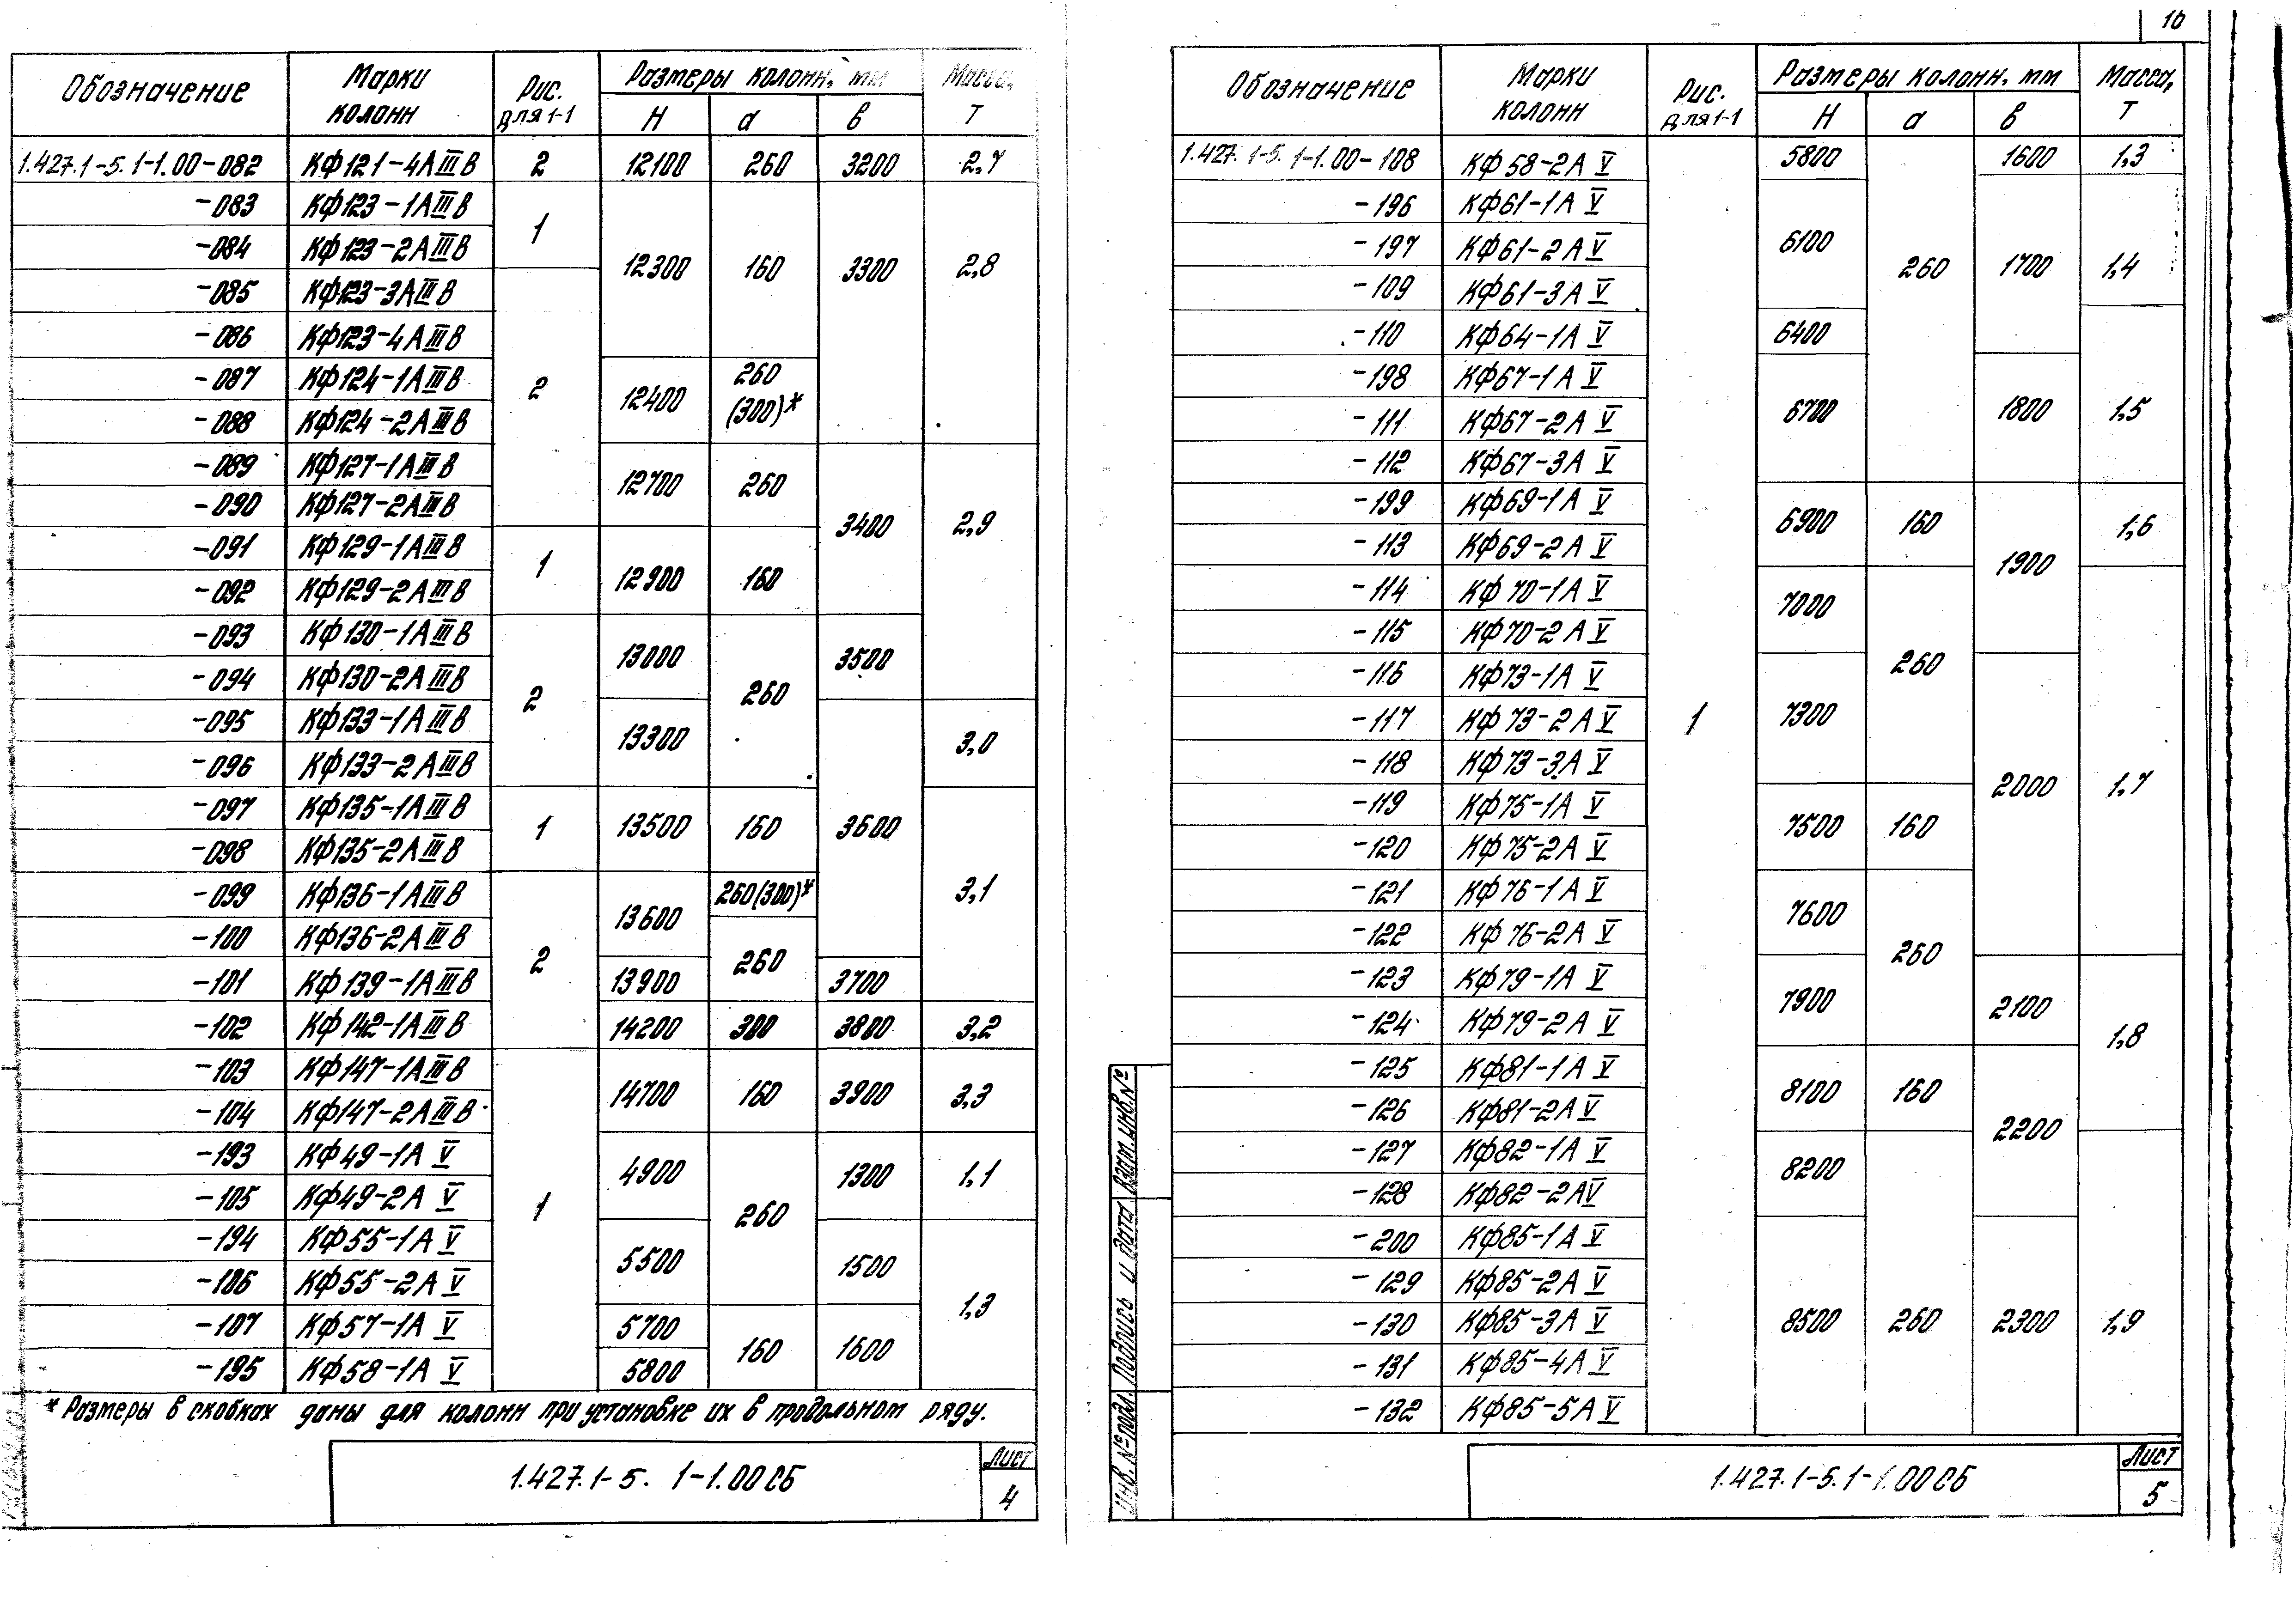 16
Обозначение Марки колонн Рис. для 1-1 Размеры колонн, мм Масса, т
H а в
1.427.1-5.1-1.00-082 КФ121-4АIIIВ 2 12100 260 3200 2,7
-083 КФ123-1АIIIВ 1 12300 160 3300 2,8
-084 КФ123-2АIIIВ
-085 КФ123-3АIIIВ 2
-086 КФ123-4АIIIВ
-087 КФ124-1АIIIВ 12400 260 (300)*
-088 КФ124-2АIIIВ
-089 КФ127-1АIIIВ 12700 260 3400 2,9
-090 КФ127-2АIIIВ
-091 КФ129-1АIIIВ 1 12900 160
-092 КФ129-2АIIIВ
-093 КФ130-1АIIIВ 2 13000 260 3500
-094 КФ130-2АIIIВ
-095 КФ133-1АIIIВ 13300 3600 3,0
-096 КФ133-2АIIIВ
-097 КФ135-1АIIIВ 1 13500 160 3,1
-098 КФ135-2АIIIВ
-099 КФ136-1АIIIВ 2 13600 260(300)*
-100 КФ136-2АIIIВ 260
-101 КФ139-1АIIIВ 13900 3700
-102 КФ142-1АIIIВ 14200 300 3800 3,2
-103 КФ147-1АIIIВ 1 14700 160 3900 3,3
-104 КФ147-2АIIIВ
-193 КФ49-1А V 4900 260 1300 1,1
-105 КФ49-2А V
-194 КФ55-1А V 5500 1500 1,3
-106 КФ55-2А V
-107 КФ57-1А V 5700 160 1600
-195 КФ58-1А V 5800
* Размеры в скобках даны для колонн при установке их в продольном ряду.
1.427.1-5. 1-1.00СБ Лист
4
Обозначение Марки колонн Рис. для 1-1 Размеры колонн, мм Масса, т
H а в
1.427.1-5.1-1.00-108 КФ58-2А V 1 5800 260 1600 1,3
-196 КФ61-1А V 6100 1700 1,4
-197 КФ61-2А V
-109 КФ61-3А V
-110 КФ64-1А V 6400 1,5
-198 КФ67-1А V 6700 1800
-111 КФ67-2А V
-112 КФ67-3А V
-199 КФ69-1А V 6900 160 1900 1,6
-113 КФ69-2А V
-114 КФ70-1А V 7000 260 1,7
-115 КФ70-2А V
-116 КФ73-1А V 7300 2000
-117 КФ73-2А V
-118 КФ73-3А V
-119 КФ75-1А V 7500 160
-120 КФ75-2А V
-121 КФ76-1А V 7600 260
-122 КФ76-2А V
-123 КФ79-1А V 7900 2100 1,8
-124 КФ79-2А V
-125 КФ81-1А V 8100 160 2200
-126 КФ81-2А V
-127 КФ82-1А V 8200 260 1,9
-128 КФ82-2АV
-200 КФ85-1А V 8500 2300
-129 КФ85-2А V
-130 КФ85-3А V
-131 КФ85-4А V
-132 КФ85-5А V
Инв. № подл. Подпись и дата Взам. инв. №
1.427.1-5.1-1.00СБ Лист
5